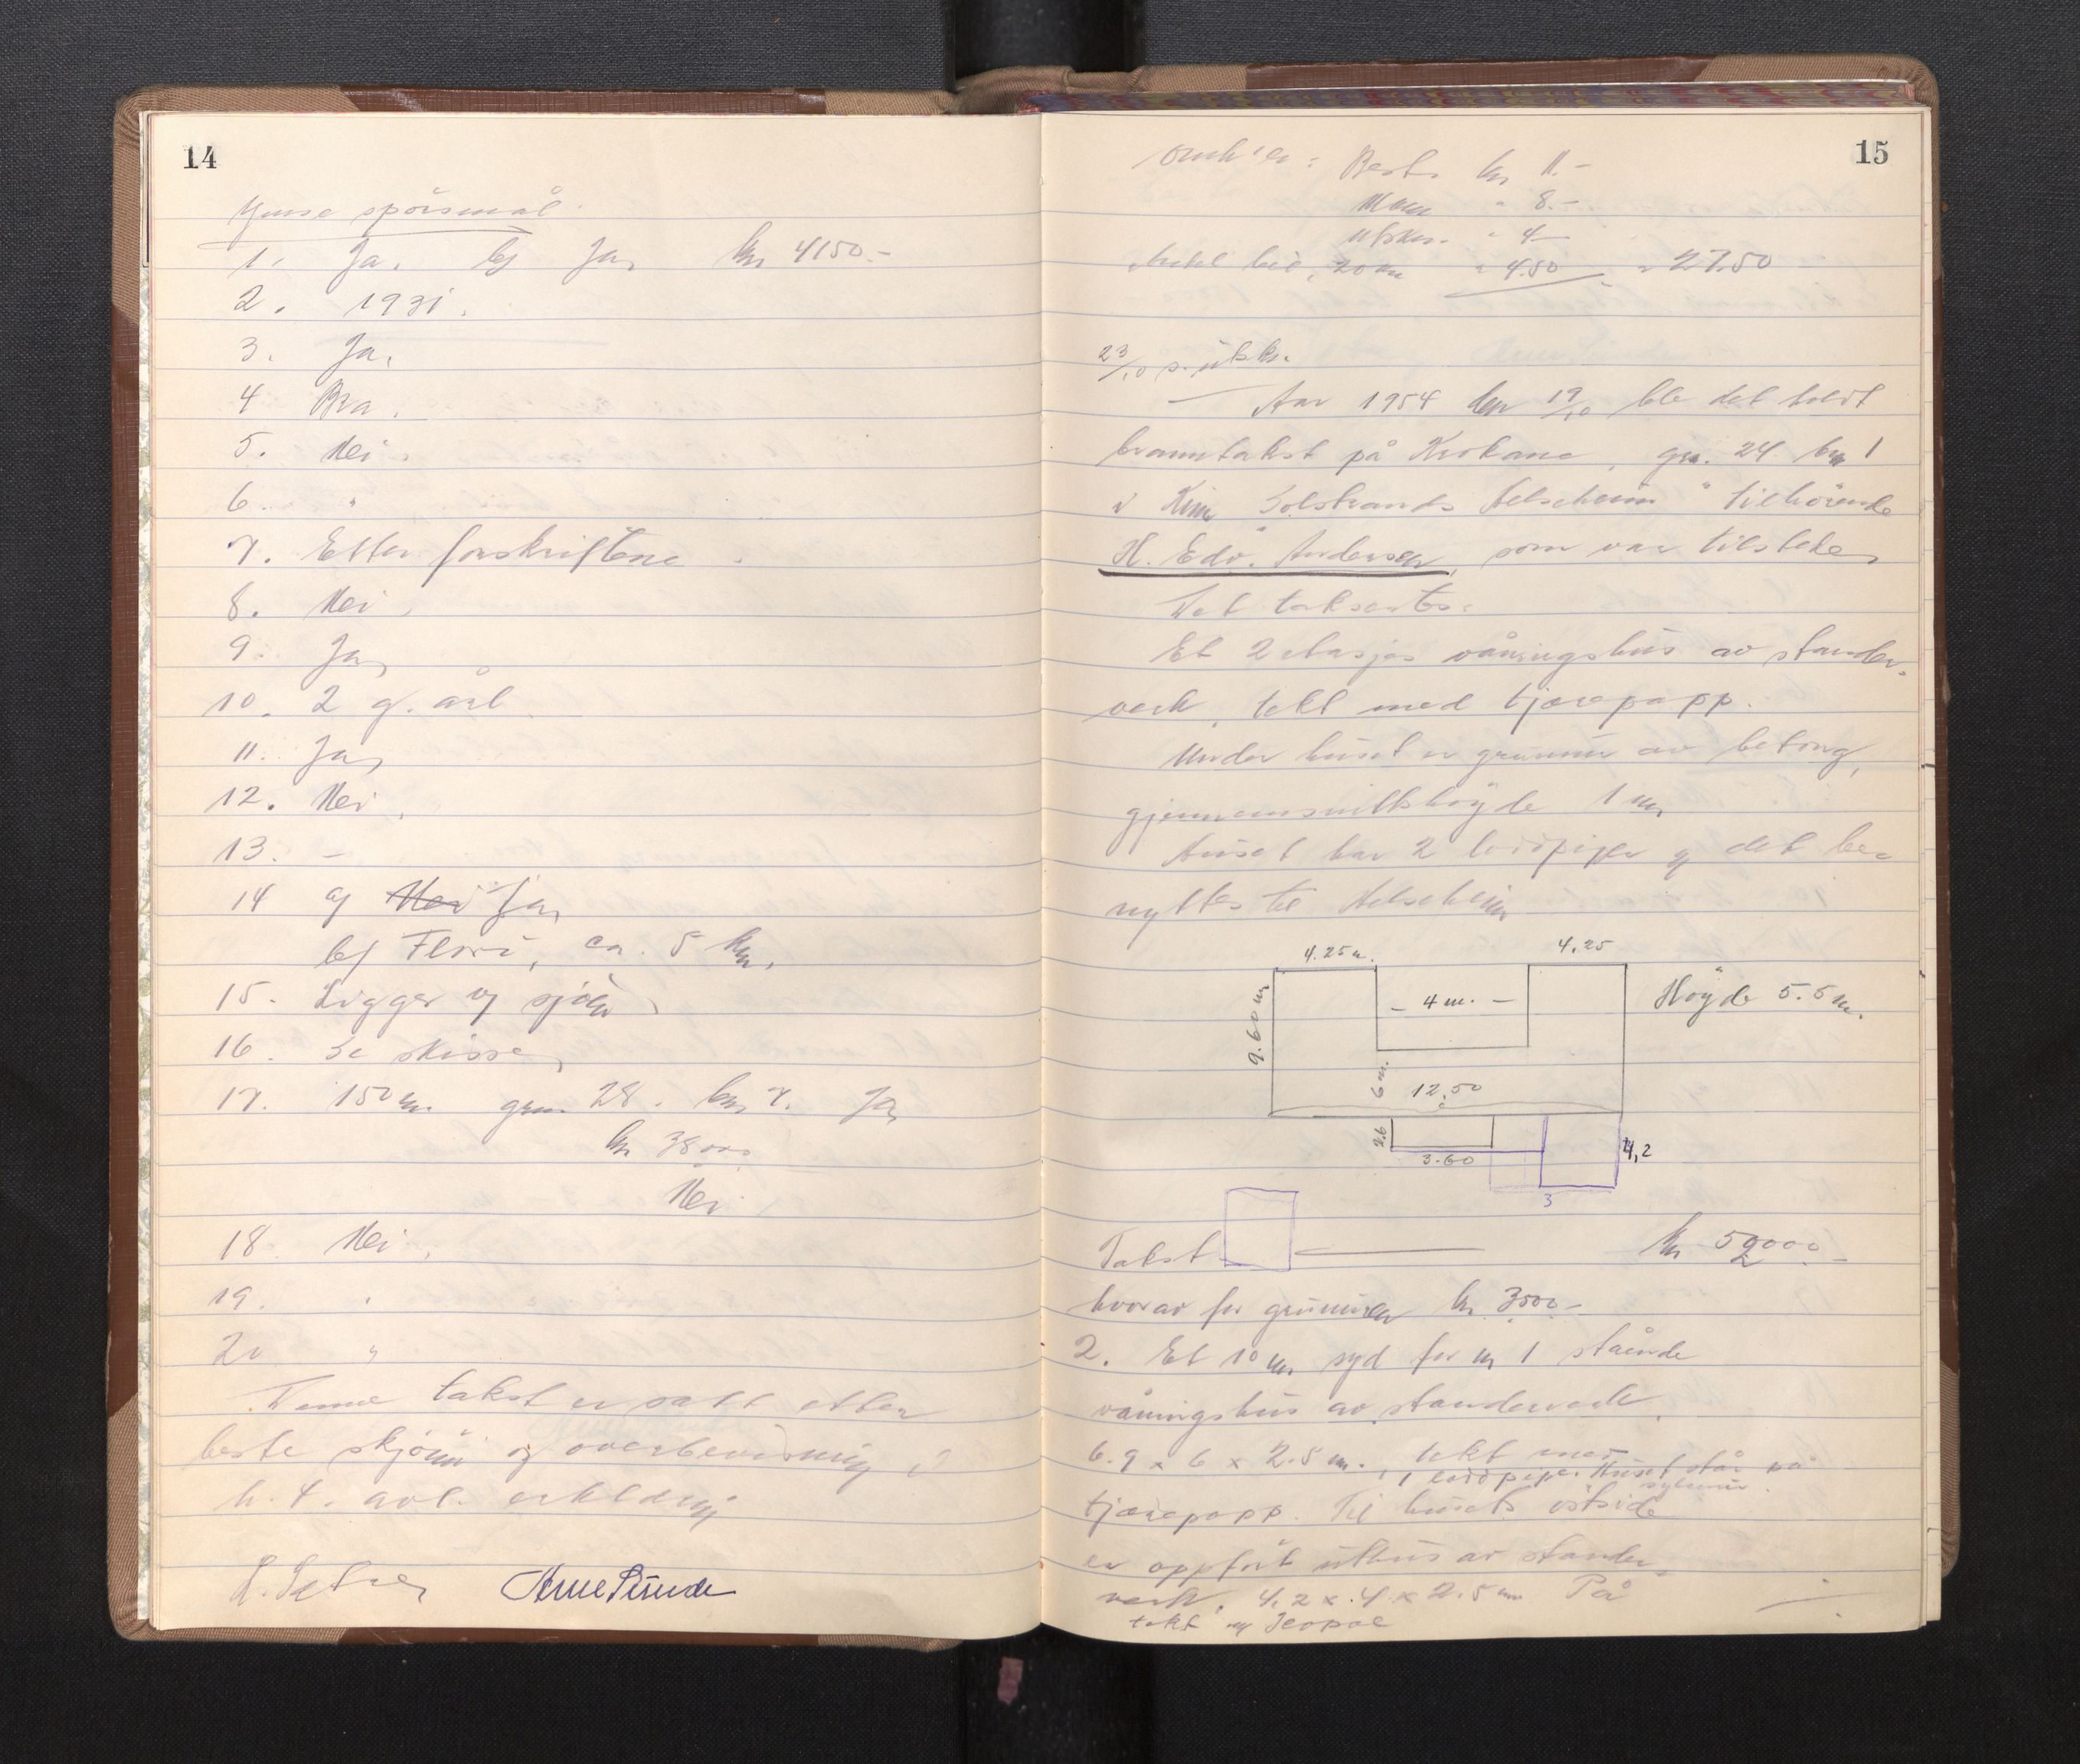 14
Ymse spørsmål.
1. Ja. b) Ja, kr 4150.-
2. 1931.
3. Ja.
4 Bra.
5. Nei.
6. "
7. Etter forskriftene.
8. Nei.
9. Ja,
10. 2 g. årl.
11. Ja,
12. Nei.
13. -
14 a) Nei Ja,
b) Florø, ca. 5 km.
15. Ligger v/ sjøen
16. Se skisse,
17. 150 m. gnr. 28. bnr 7. Ja,
kr 38000
Nei
18 Nei.
19. "
20 "
Denne takst er satt etter
beste skjønn og overbevisning i
h. t. avl. erklæring
Arne Sunde
15
Omk'er: Best. kr 11.-
Mann " 8.-
Utskr. " 4-
20 km " 4.50 " 27.50
23/10 s. utskr.
Aar 1954 den 19/10 ble det holdt
branntakst på Krokane, gnr. 24 bnr 1
i Kinn "Solstrands Helseheim" tilhørende
H. Edv. Andersen, som var tilstede,
Det taksertes:
Et 2 etasjes våningshus av stender-
verk, tekt med tjærepapp.
Under huset er grunnmur av betong,
gjennomsnittshøyde 1 m,
Huset har 2 loddpiper og det be-
nyttes til Helseheim
4.25 m.
4,25
9.60 m
- 4 m. -
Høyde 5.5 m.
6 m.
12,50
2.6
3.60
4,2
3
Takst kr 52000.-
hvorav for grunnmuren kr. 3500-
2. Et 10 m. syd for nr 1 stående
våningshus av stenderverk,
6.9 x 6 x 2.5 m., tekt med
1 loddpipe. Huset står på
tjærepapp. Til husets østside
er oppført uthus av stender-
verk, 4,2 x 4 x 2.5 m På
tekt m/